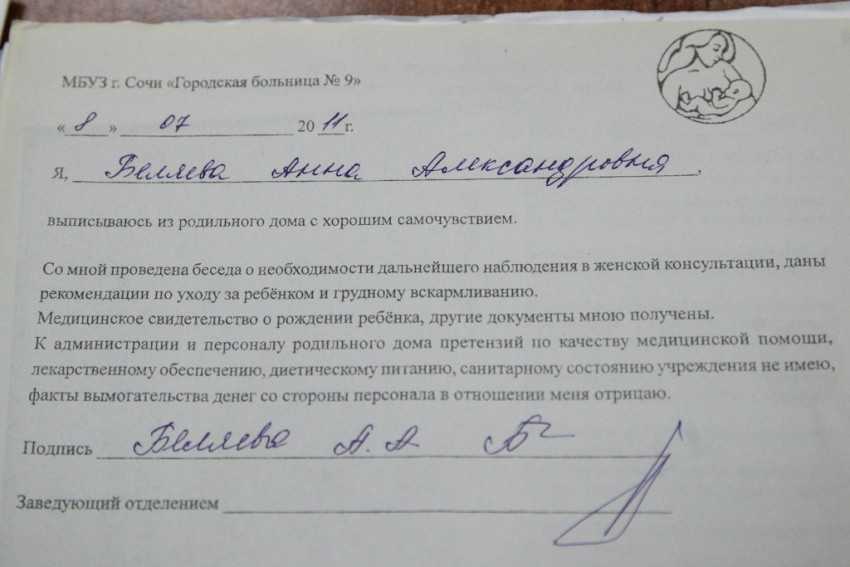 МБУЗ г. Сочи «Городская больница № 9»
«8» 07 2011г.
Я, Беляева Анна Александровня,
выписываюсь из родильного дома с хорошим самочувствием.
Со мной проведена беседа о необходимости дальнейшего наблюдения в женской консультации, даны
рекомендации по уходу за ребёнком и грудному вскармливанию.
Медицинское свидетельство о рождении ребёнка, другие документы мною получены.
К администрации и персоналу родильного дома претензий по качеству медицинской помощи,
лекарственному обеспечению, диетическому питанию, санитарному состоянию учреждения не имею,
факты вымогательства денег со стороны персонала в отношении меня отрицаю.
Подпись Беляева А. А
Заведующий отделением